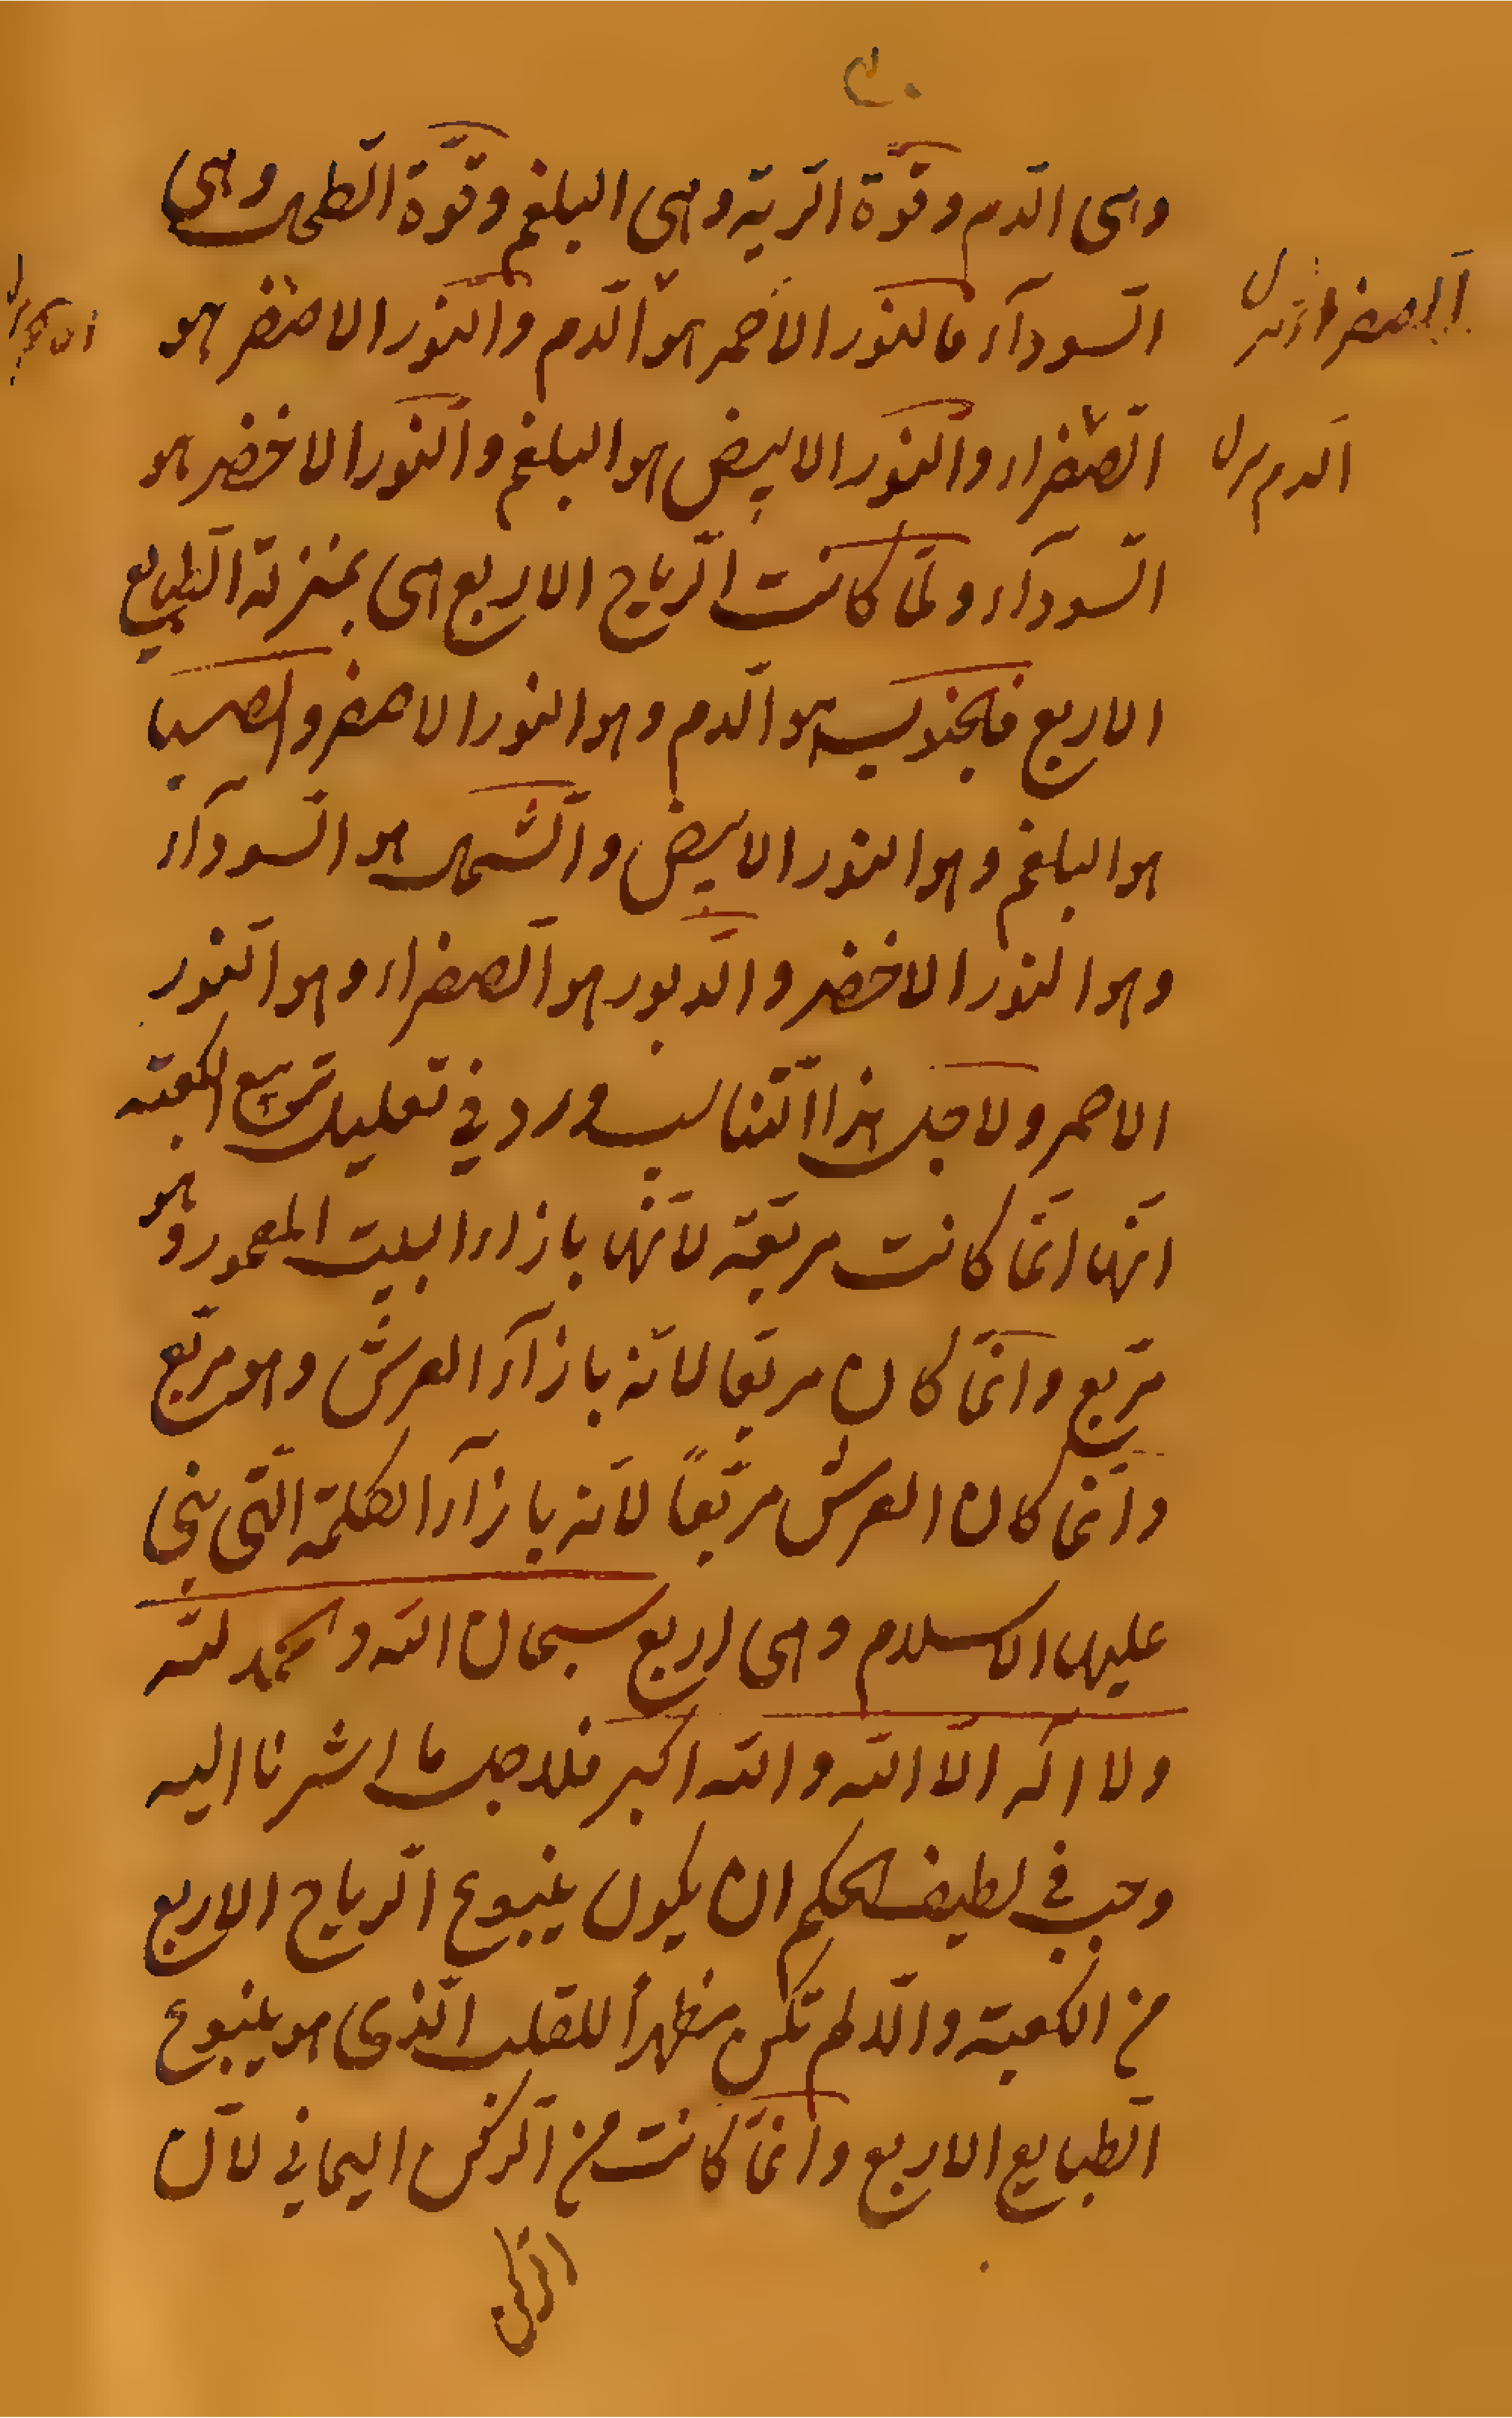 وهی الدم وقوّة الریّة وهی البلغم وقوّة الطحال وهی
السودآء فالنور الأحمر هو الدم والنور الاصفر هو
الصفراء والنور الابیض هو البلغم والنور الاخضر هو
السودآء ولمّا کانت الریاح الاربع هی بمنزلة الطبایع
الاربع فالجنوب هو الدم وهو النور الاصفر والصبا
هو البلغم وهو النور الابیض والشمال هو السودآء
وهو النور الاخضر والدبور هو الصفراء وهو النور
الاحمر ولاجل هذا التناسب ورد فی تعلیل تربیع الکعبة
انّها انّما کانت مربّعة لانّها بازاء البیت المعمور وهو
مربّع وانّما کان مربّعا لانّه بازآء العرش وهو مربّع
وانّما کان العرش مربّعاً لانّه بازآء الکلمة الّتی بنی
علیها الاسلام وهی اربع سبحان الله والحمد لله
ولا اله الّا الله والله اکبر فلاجل ما اشرنا الیه
وجب فی لطیف الحکم ان یکون ینبوع الریاح الاربع
من الکعبة والّا لم تکن مظهراً للقلب الّذی هو ینبوع
الطبایع الاربع وانّما کانت من الرکن الیمانی لانّ
الرکن
الصفراء
الدم